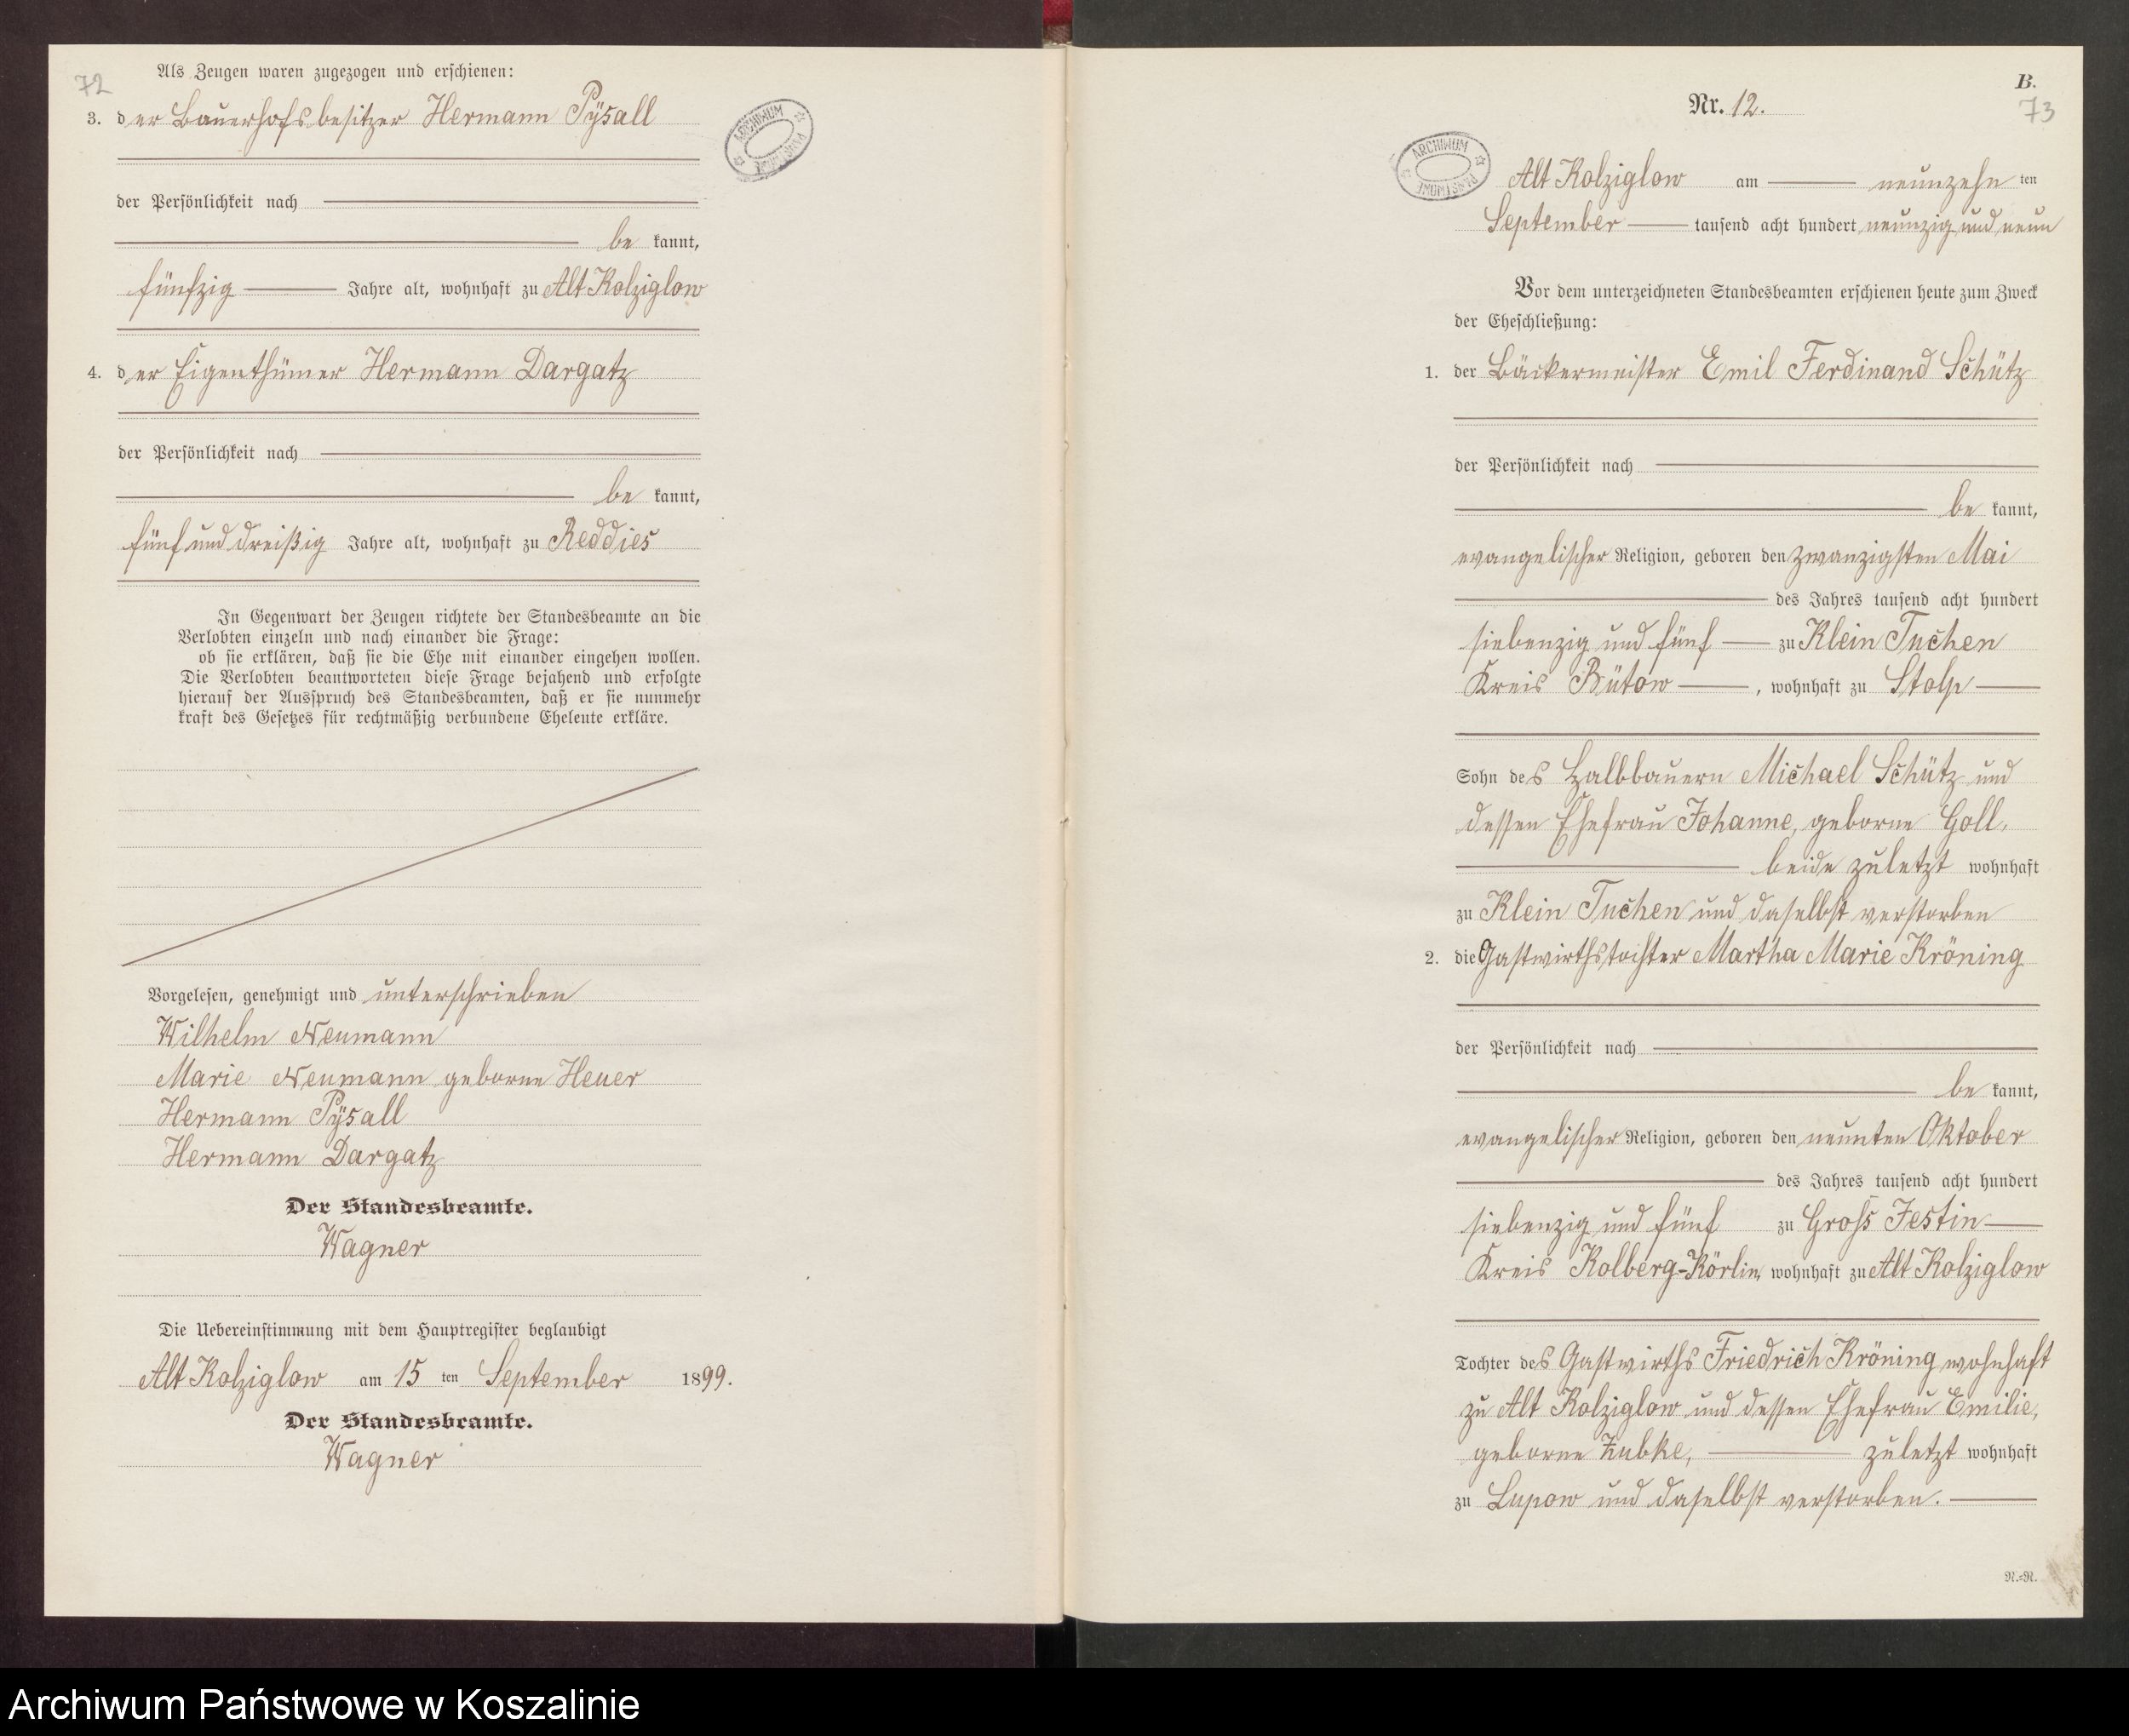 72
Als Zeugen waren zugezogen und erschienen:
3. der Bauerhofsbesitzer Hermann Pÿsall
der Persönlichkeit nach
be kannt,
fünfzig Jahre alt, wohnhaft zu Alt Kolziglow
4. der Eigenthümer Hermann Dargatz
der Persönlichkeit nach
be kannt,
fünf und dreißig Jahre alt, wohnhaft zu Reddies
In Gegenwart der Zeugen richtete der Standesbeamte an die
Verlobten einzeln und nach einander die Frage:
ob sie erklären, daß sie die Ehe mit einander eingehen wollen.
Die Verlobten beantworteten diese Frage bejahend und erfolgte
hierauf der Ausspruch des Standesbeamten, daß er sie nunmehr
kraft des Gesetzes für rechtmäßig verbundene Eheleute erkläre.
Vorgelesen, genehmigt und unterschrieben
Wilhelm Neumann
Marie Neumann geborne Heuer
Hermann Pÿsall
Hermann Dargatz
Der Standesbeamte.
Wagner
Die Uebereinstimmung mit dem Hauptregister beglaubigt
Alt Kolziglow am 15 ten September 1899.
Der Standesbeamte.
Wagner
ARCHIWUM PAŃSTWOWE
B.
73
Nr. 12.
ARCHIWUM PAŃSTWOWE
Alt Kolziglow am neunzehn ten
September tausend acht hundert neunzig und neun
Vor dem unterzeichneten Standesbeamten erschienen heute zum Zweck
der Eheschließung:
1. der Bäckermeister Emil Ferdinand Schütz
der Persönlichkeit nach
be kannt,
evangelischer Religion, geboren den zwanzigsten Mai
des Jahres tausend acht hundert
siebenzig und fünf zu Klein Tuchen
Kreis Bütow, wohnhaft zu Stolp
Sohn des Halbbauern Michael Schütz und
dessen Ehefrau Johanne, geborne Goll,
beide zuletzt wohnhaft
zu Klein Tuchen und daselbst verstorben
2. die Gastwirthstochter Martha Marie Kröning
der Persönlichkeit nach
be kannt,
evangelischer Religion, geboren den neunten Oktober
des Jahres tausend acht hundert
siebenzig und fünf zu Groß Jestin
Kreis Kolberg-Körlin, wohnhaft zu Alt Kolziglow
Tochter des Gastwirths Friedrich Kröning wohnhaft
zu Alt Kolziglow und dessen Ehefrau Emilie,
geborne Zubke, zuletzt wohnhaft
zu Lupow und daselbst verstorben.
N.=N.
Archiwum Państwowe w Koszalinie